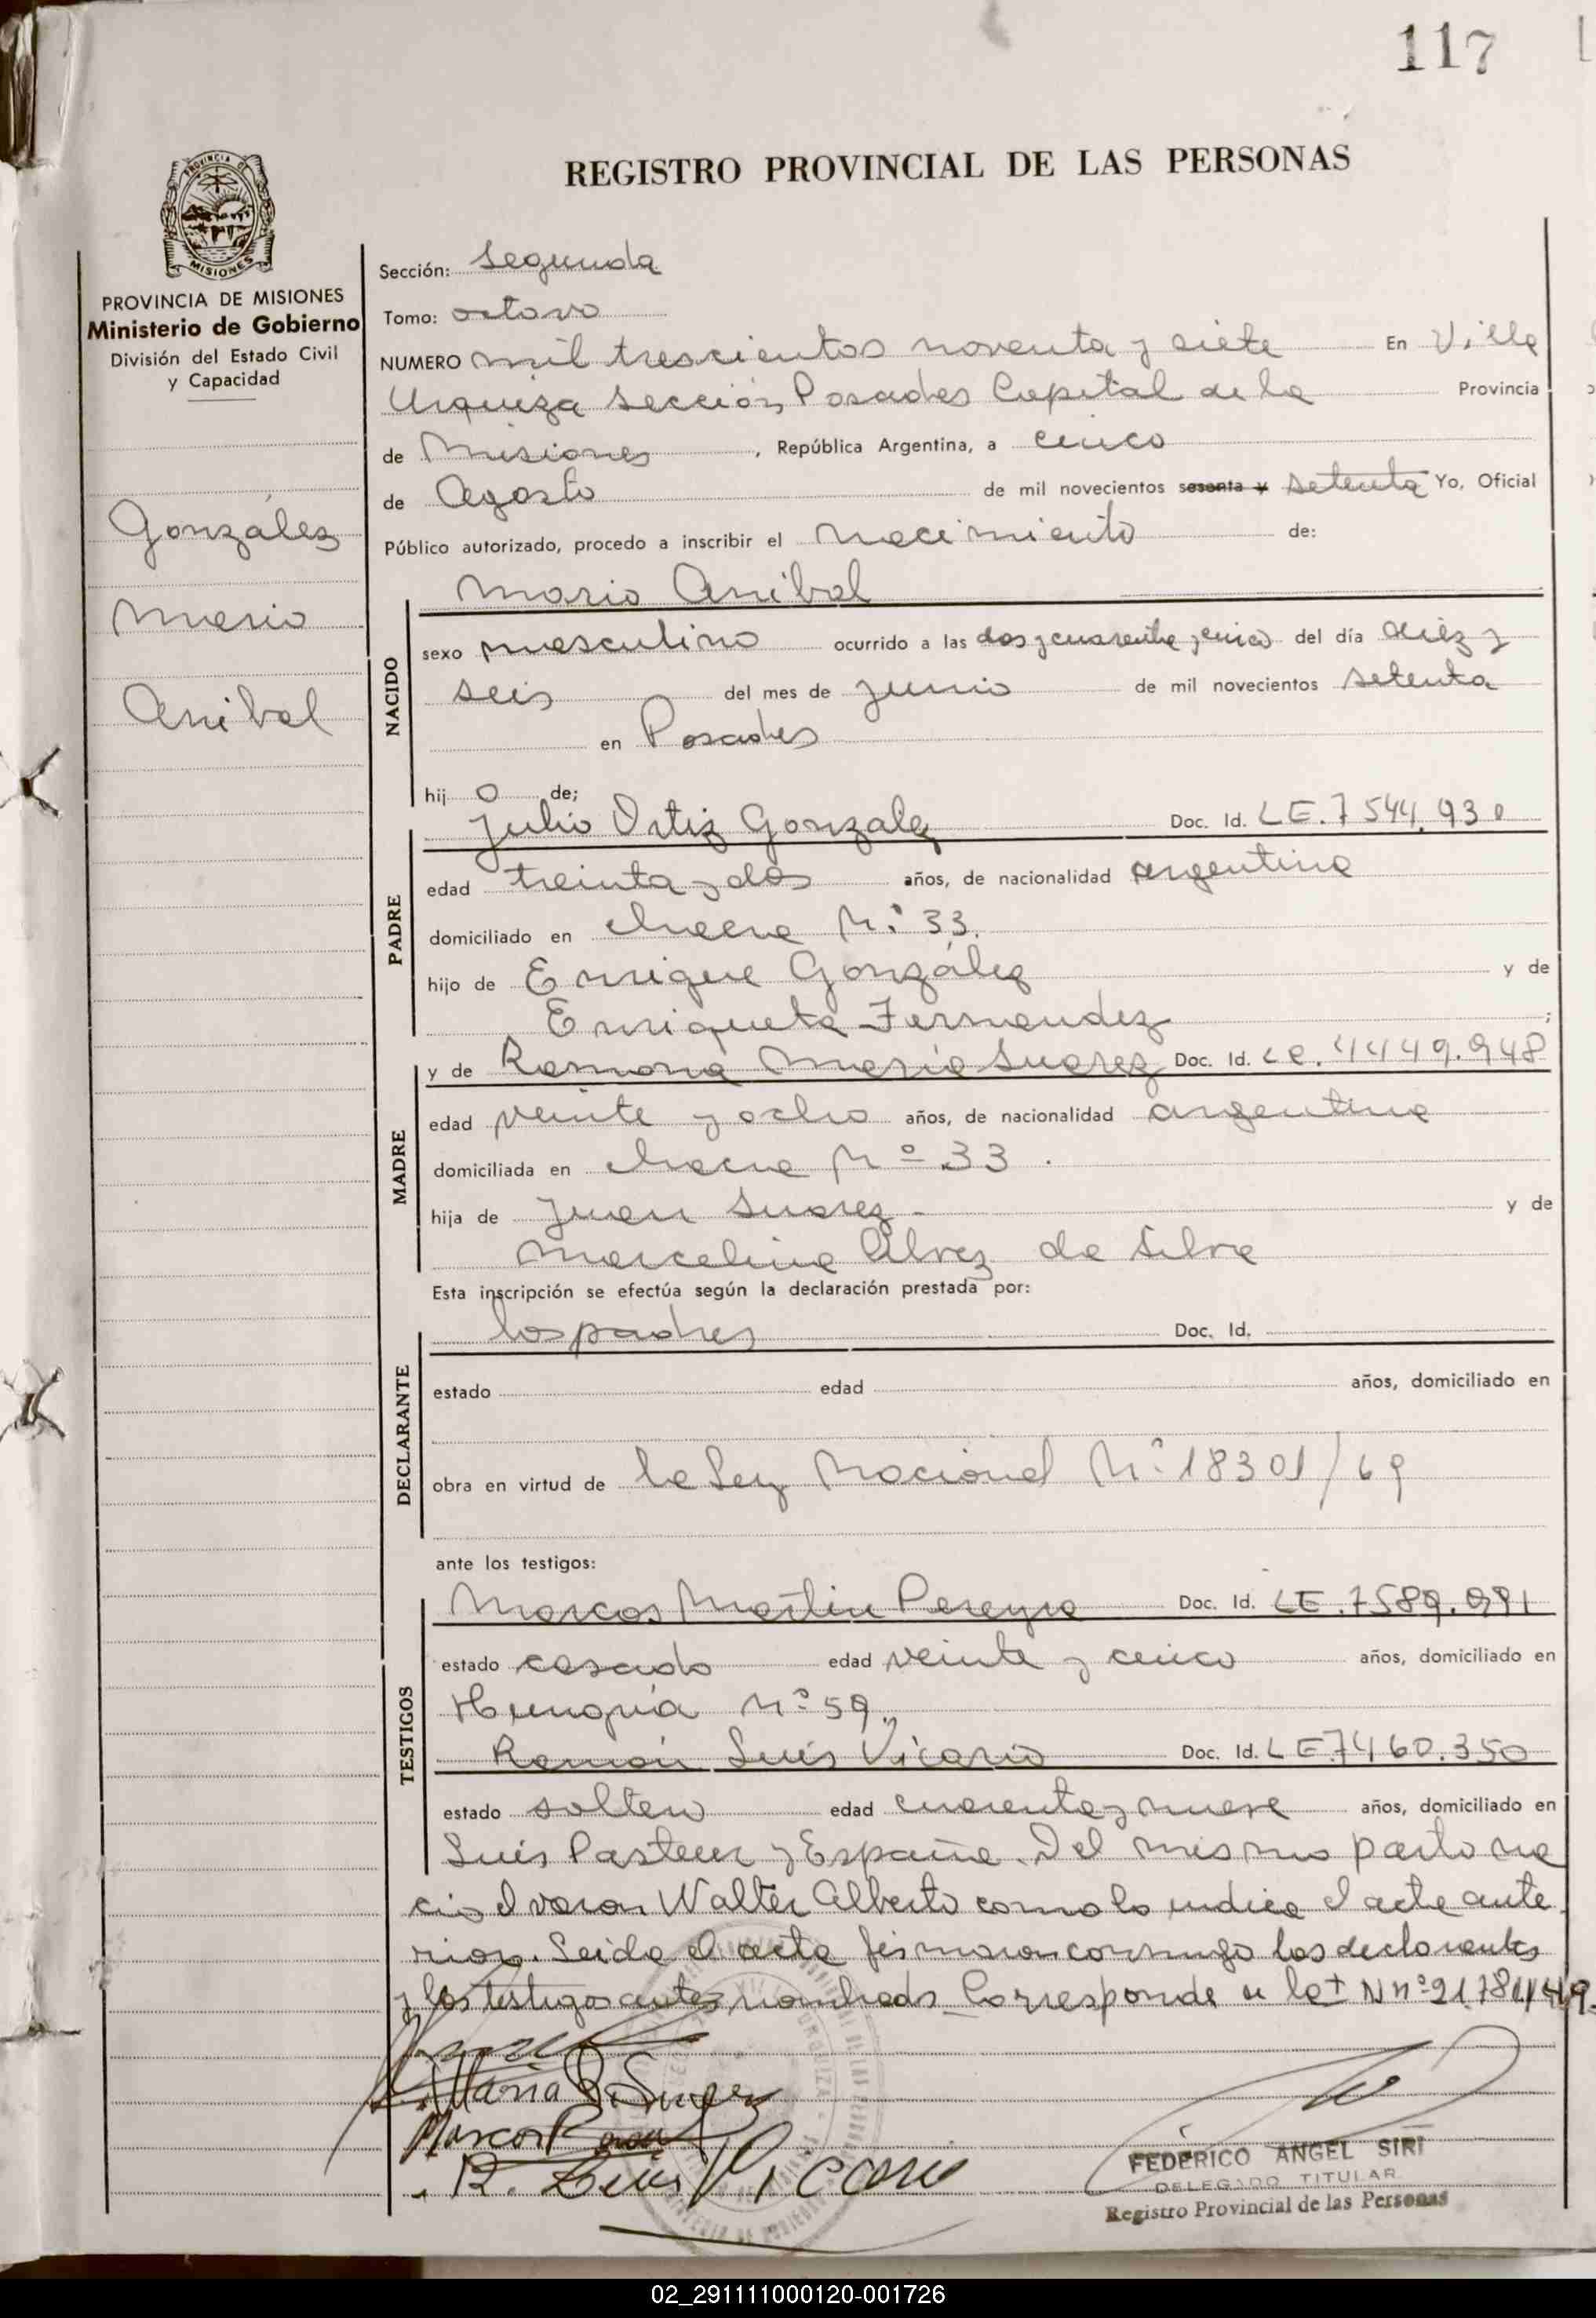 117
REGISTRO PROVINCIAL DE LAS PERSONAS
PROVINCIA DE MISIONES
PROVINCIA DE MISIONES
Ministerio de Gobierno
División del Estado Civil
y Capacidad
González
Mario
Anibal
Sección: Segunda
Tomo: octavo
NUMERO mil trescientos noventa y siete En Villa
Urquiza sección Posadas Capital de la Provincia
de Misiones, República Argentina, a cinco
de Agosto de mil novecientos sesenta y setenta Yo, Oficial
Público autorizado, procedo a inscribir el nacimiento de:
NACIDO
Mario Anibal
sexo masculino ocurrido a las dos y cuarenta y cinco del día diez y
seis del mes de junio de mil novecientos setenta
en Posadas
hij o de;
PADRE
Julio Ortiz Gonzalez Doc. Id. LE.7544.930
edad treinta y dos años, de nacionalidad argentina
domiciliado en chacra N.° 33.
hijo de Enrique González y de
Enriqueta Fernandez ;
MADRE
y de Ramona Maria Suarez Doc. Id. LC. 4449.948
edad veinte y ocho años, de nacionalidad argentina
domiciliada en chacra Nº 33.
hija de Juan Suarez y de
Marcelina Alvez da Silva
Esta inscripción se efectúa según la declaración prestada por:
DECLARANTE
los padres Doc. Id.
estado edad años, domiciliado en
obra en virtud de la Ley Nacional N.° 18301/69
ante los testigos:
TESTIGOS
Marcos Martin Pereyra Doc. Id. LE.7589.991
estado casado edad veinte y cinco años, domiciliado en
Hungria N.° 59.
Ramón Luis Vicario Doc. Id. LE7460.350
estado soltero edad cuarenta y nueve años, domiciliado en
Luis Pasteur y España. Del mismo parto na
cio el varon Walter Alberto como lo indica el acta ante
rior. Leida el acta firmaron conmigo los declarantes
y los testigos antes nombrads. Corresponde a la N n°21.781.149.
Maria R. Suarez
Marcos
R. Luis Viccario
FEDERICO ANGEL SIRI
DELEGADO TITULAR
Registro Provincial de las Personas
02_291111000120-001726